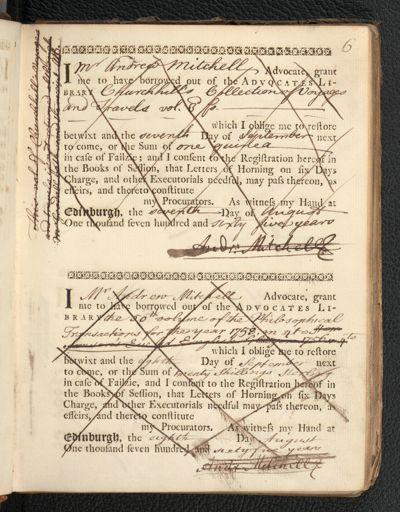 6
I Mr Andrew Mitchell Advocate, grant
me to have borrowed out of the ADVOCATES LI-
BRARY Churchhill's Collection of Voyages
and Travels vol. 6
which I oblige me to restore
betwixt and the seventh Day of September next
to come, or the Sum of one guinea
in case of Failzie; and I consent to the Registration hereof in
the Books of Session, that Letters of Horning on six Days
Charge, and other Executorials needful, may pass thereon, as
effeirs, and thereto constitute
my Procurators. As witness my Hand at
Edinburgh, the seventh Day of August
One thousand seven hundred and sixty five years
Andw Mitchell
I Mr Andrew Mitchell Advocate, grant
me to have borrowed out of the ADVOCATES LI-
BRARY the 50th volume of the Philosophical
Transactions for the year 1758
which I oblige me to restore
betwixt and the eighth Day of September next
to come, or the Sum of twenty Shillings Sterling
in case of Failzie, and I consent to the Registration hereof in
the Books of Session, that Letters of Horning on six Days
Charge, and other Executorials needful may pass thereon, as
effeirs, and thereto constitute
my Procurators. As witness my Hand at
Edinburgh, the eighth Day August
One thousand seven hundred and sixty five year
Andw Mitchell